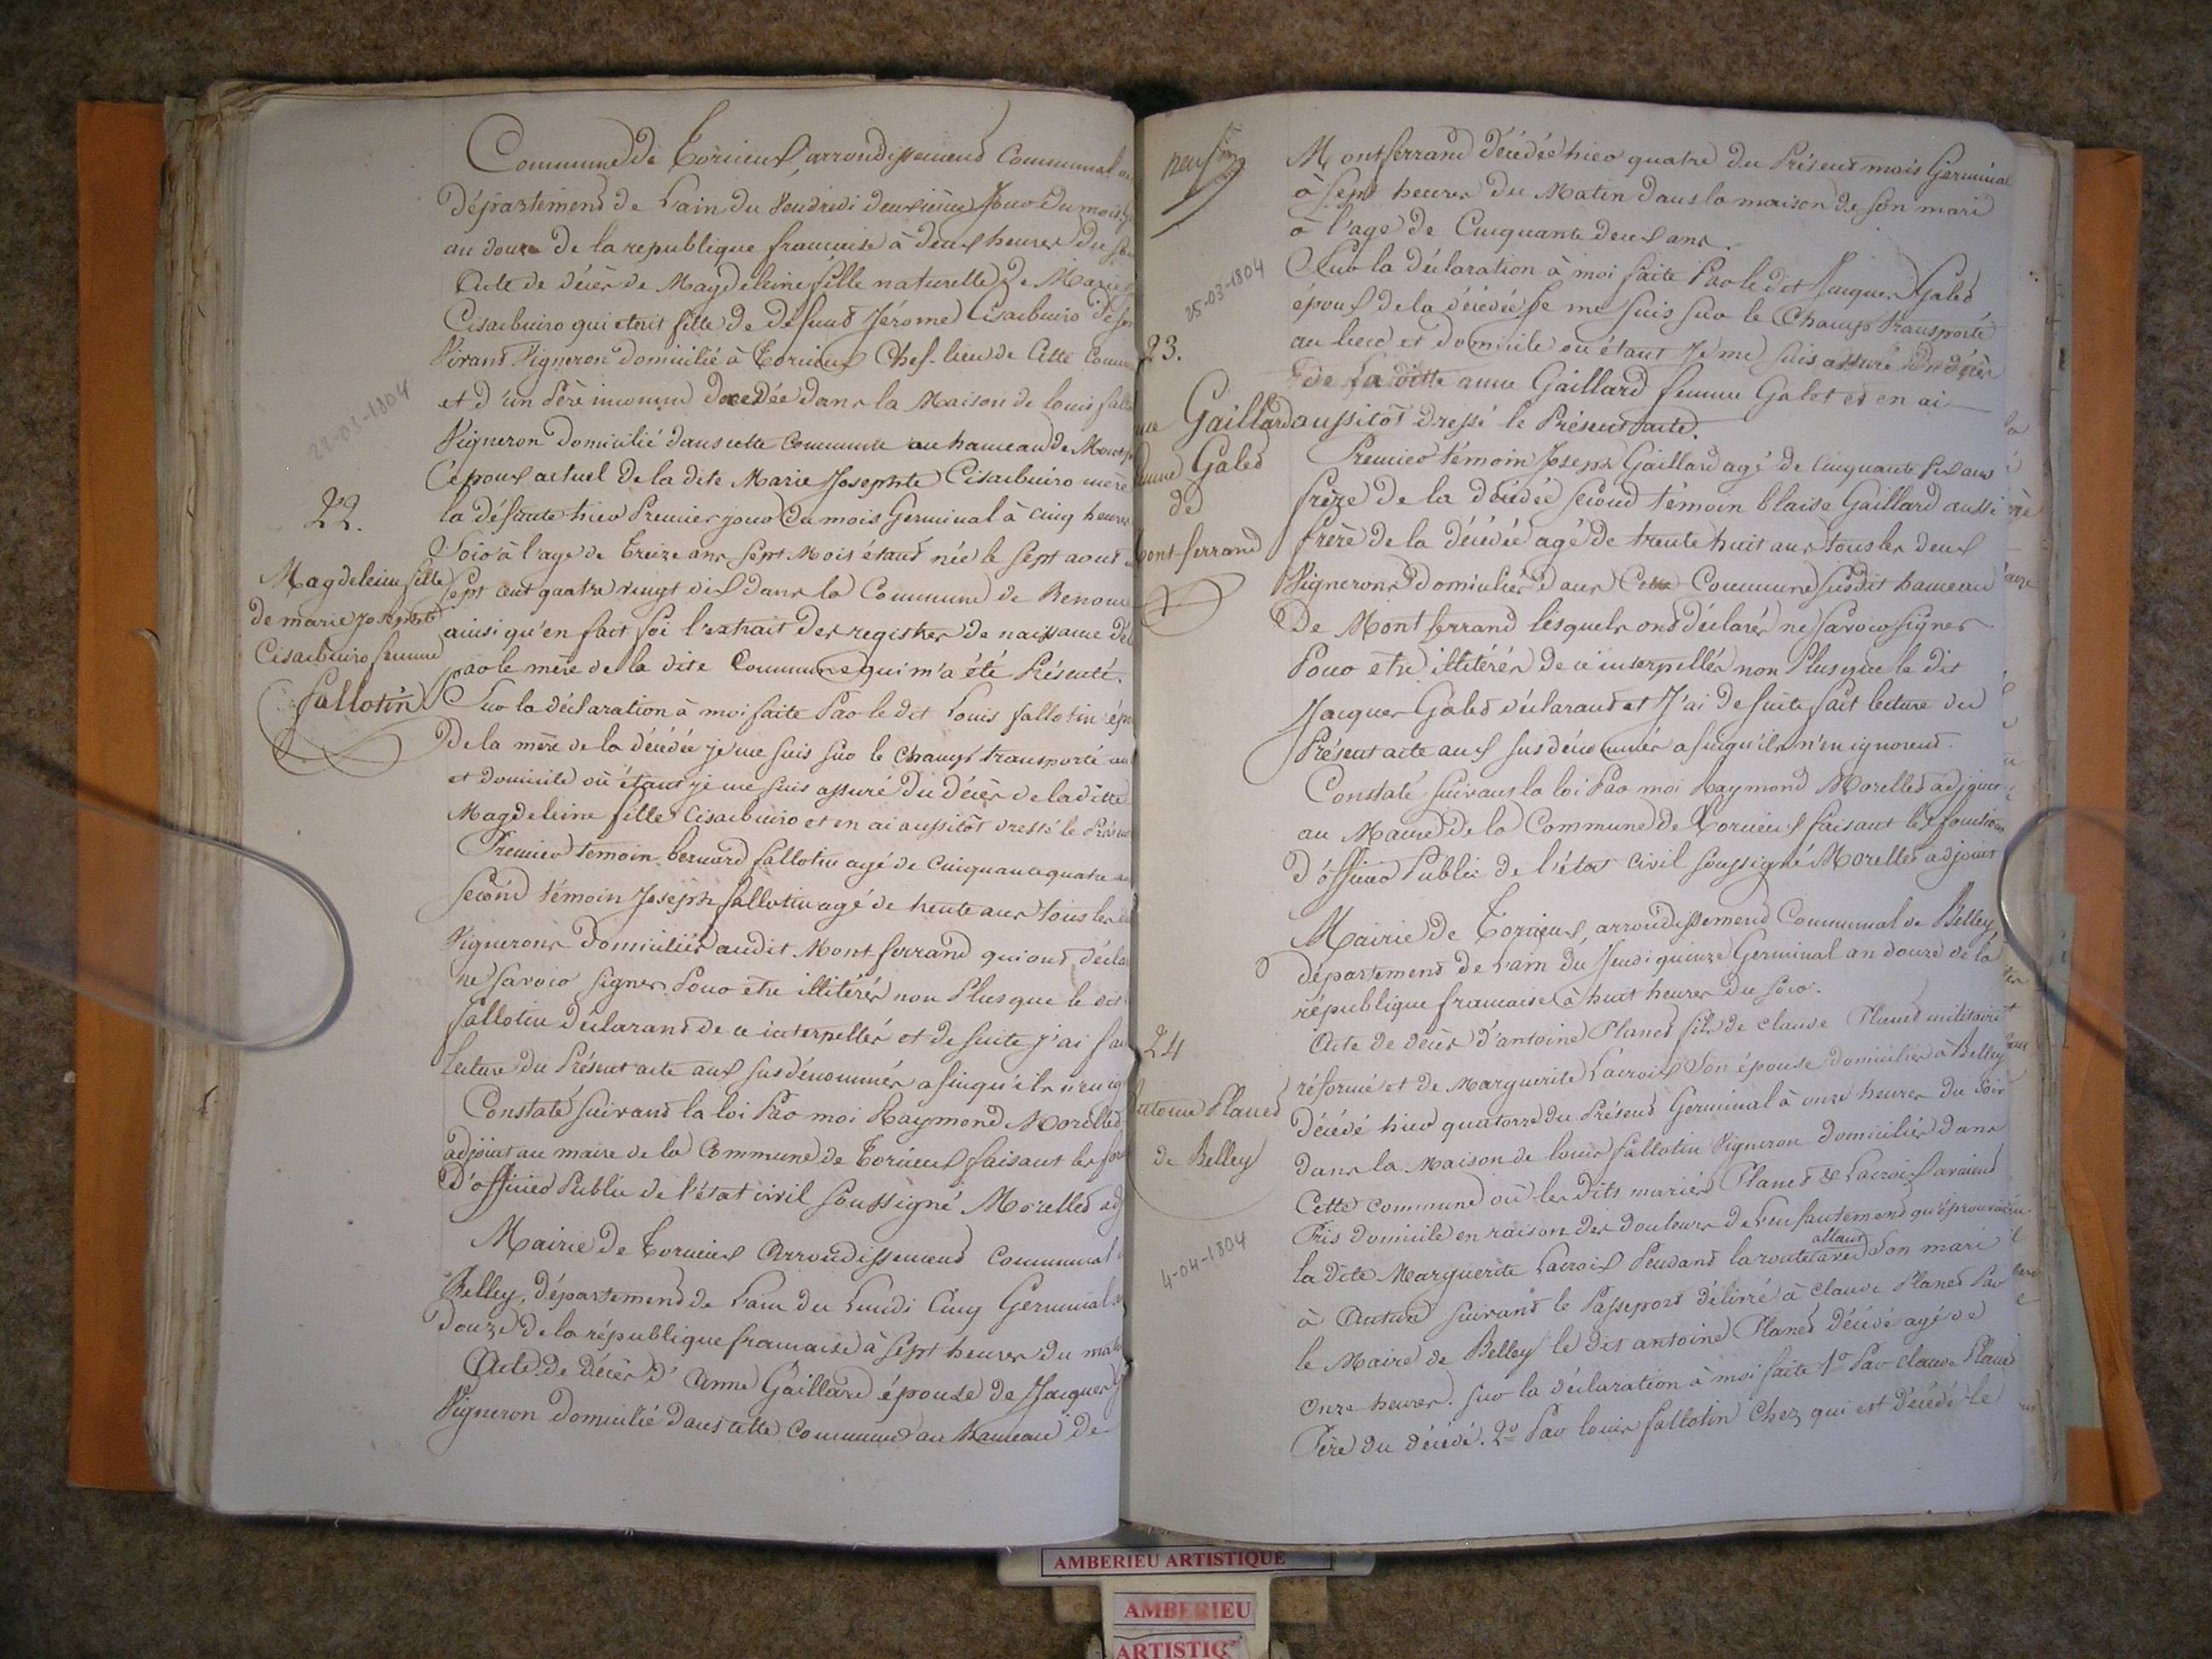 Commune de Torcieux, arrondissement Communal
Département de Lain du Vendredi deuxième Jour du mois
an douze de la republique francaise à deux heures du
Acte de décès de Magdeleine fille naturelle de Marie
Cisarbuiro qui etoit fille de défunt Jérome Cisarbuiro de son
Vivant Vigneron domicilié à Torcieux Chef-lieu de Cette Comm
et d'un Père inconnu décédée dans la Maison de louis fallo
Vigneron domicilié dans cette commune au hameau de Mont
l'époux actuel de la dite Marie Josephte Cisarbuiro mère
la défunte hier Premier jour du mois Germinal à cinq heures
Soir à l'age de treize ans sept Mois étant née le sept aout
sept cent quatre vingt dix dans la Commune de
ainsi qu'en fait foi l'extrait des registres de naissance dé
par le mère de la dite Commune qui m'a été Présenté.
Sur la déclaration à moi faite Par le dit Louis fallotin ép
De la mère de la décédée je me suis sur le champ transporté au
et domicile où étant je me suis assuré du décès de la ditte
Magdeleine fille Cisarbuiro et en ai aussitôt dressé le Prése
Premier temoin bernard fallotin agé de Cinquante quatre an
second témoin Joseph fallotin agé de trente ans tous les
Vignerons domiciliés audit Montferrand qui ont décla
ne savoir signer Pour etre illitérés non Plus que le dit
fallotin déclarant de ce interpellés et de suite j'ai fai
lecture du Présent acte aux susdénommés afin qu'ils n'en ig
Constaté suivant la loi Par moi Raymond Morellet
adjoint au maire de la Commune de Torcieux faisant les fon
D'officier Public de l'état civil soussigné Morellet adj
Mairie de Torcieux Arrondissement Communal
Belley, département de Lain du Lundi Cinq Germinal a
douze de la république francaise à sept heures du mat
Acte de décès d'Anne Gaillard épouse de Jacques
Vigneron domicilié dans cette commune au hameau de
23-03-1804
22.
Magdeleine fille
de marie josephte
Cisarbuiro femme
fallotin
Montferrand décédée hier quatre du Présent mois Germinal
à sept heures du Matin dans la maison de son mari
à l'age de Cinquante deux ans.
Sur la déclaration à moi faite Par le dit Jacques Galet
époux de la décédée Je me suis sur le Champ transporté
au lieu et domicile où étant Je me suis assuré du décès
de la ditte anne Gaillard femme Galet et en ai
aussitôt dressé le Présent acte.
Premier témoin Joseph Gaillard agé de Cinquante six ans
frère de la décédée second témoin blaise Gaillard aussi
frère de la décédée agé de trente huit ans tous les deux
Vignerons domiciliés dans Cette Commune susdit hameau
De Montferrand lesquels ont déclarés ne savoir signer
Pour etre illitérés de ce interpellés non Plus que le dit
Jacques Galet déclarant et J'ai de suite fait lecture du
Présent acte aux susdénommés afin qu'ils n'en ignorent.
Constaté suivant la loi Par moi Raymond Morellet adjoint
au Maire de la Commune de Torcieux faisant les fonctions
d'officier Public de l'état civil soussigné Morellet adjoint
Mairie de Torcieux, arrondissement Communal de Belley,
département de Lain du Jeudi quinze Germinal an douze de la
république francaise à huit heures du soir.
Acte de décès d'antoine Planet fils de claude Planet militaire
réformé et de Marguerite Lacroix Son épouse domiciliés à Belley
décédé hier quatorze du Présent Germinal à onze heures du Soir
dans la Maison de louis fallotin Vigneron domicilié dans
Cette commune où les dits mariés Planet & Lacroix avaient
Pris domicile en raison des douleurs de l'enfantement qu'éprouvait
la dite Marguerite Lacroix Pendant la route allant avec Son mari
à Autun suivant le Passeport délivré à claude Planet Par
le Maire de Belley le dit antoine Planet décédé agé de
Onze heures. Sur la déclaration à moi faite 1º Par claude Planet
Père du décédé. 2º Par louis fallotin Chez qui est décédé le
25-03-1804
23.
Gaillard
Galet
de
Mont-ferrand
24
Antoine Planet
de Belley
4-04-1804
AMBERIEU ARTISTIQUE
AMBERIEU
ARTISTIQ